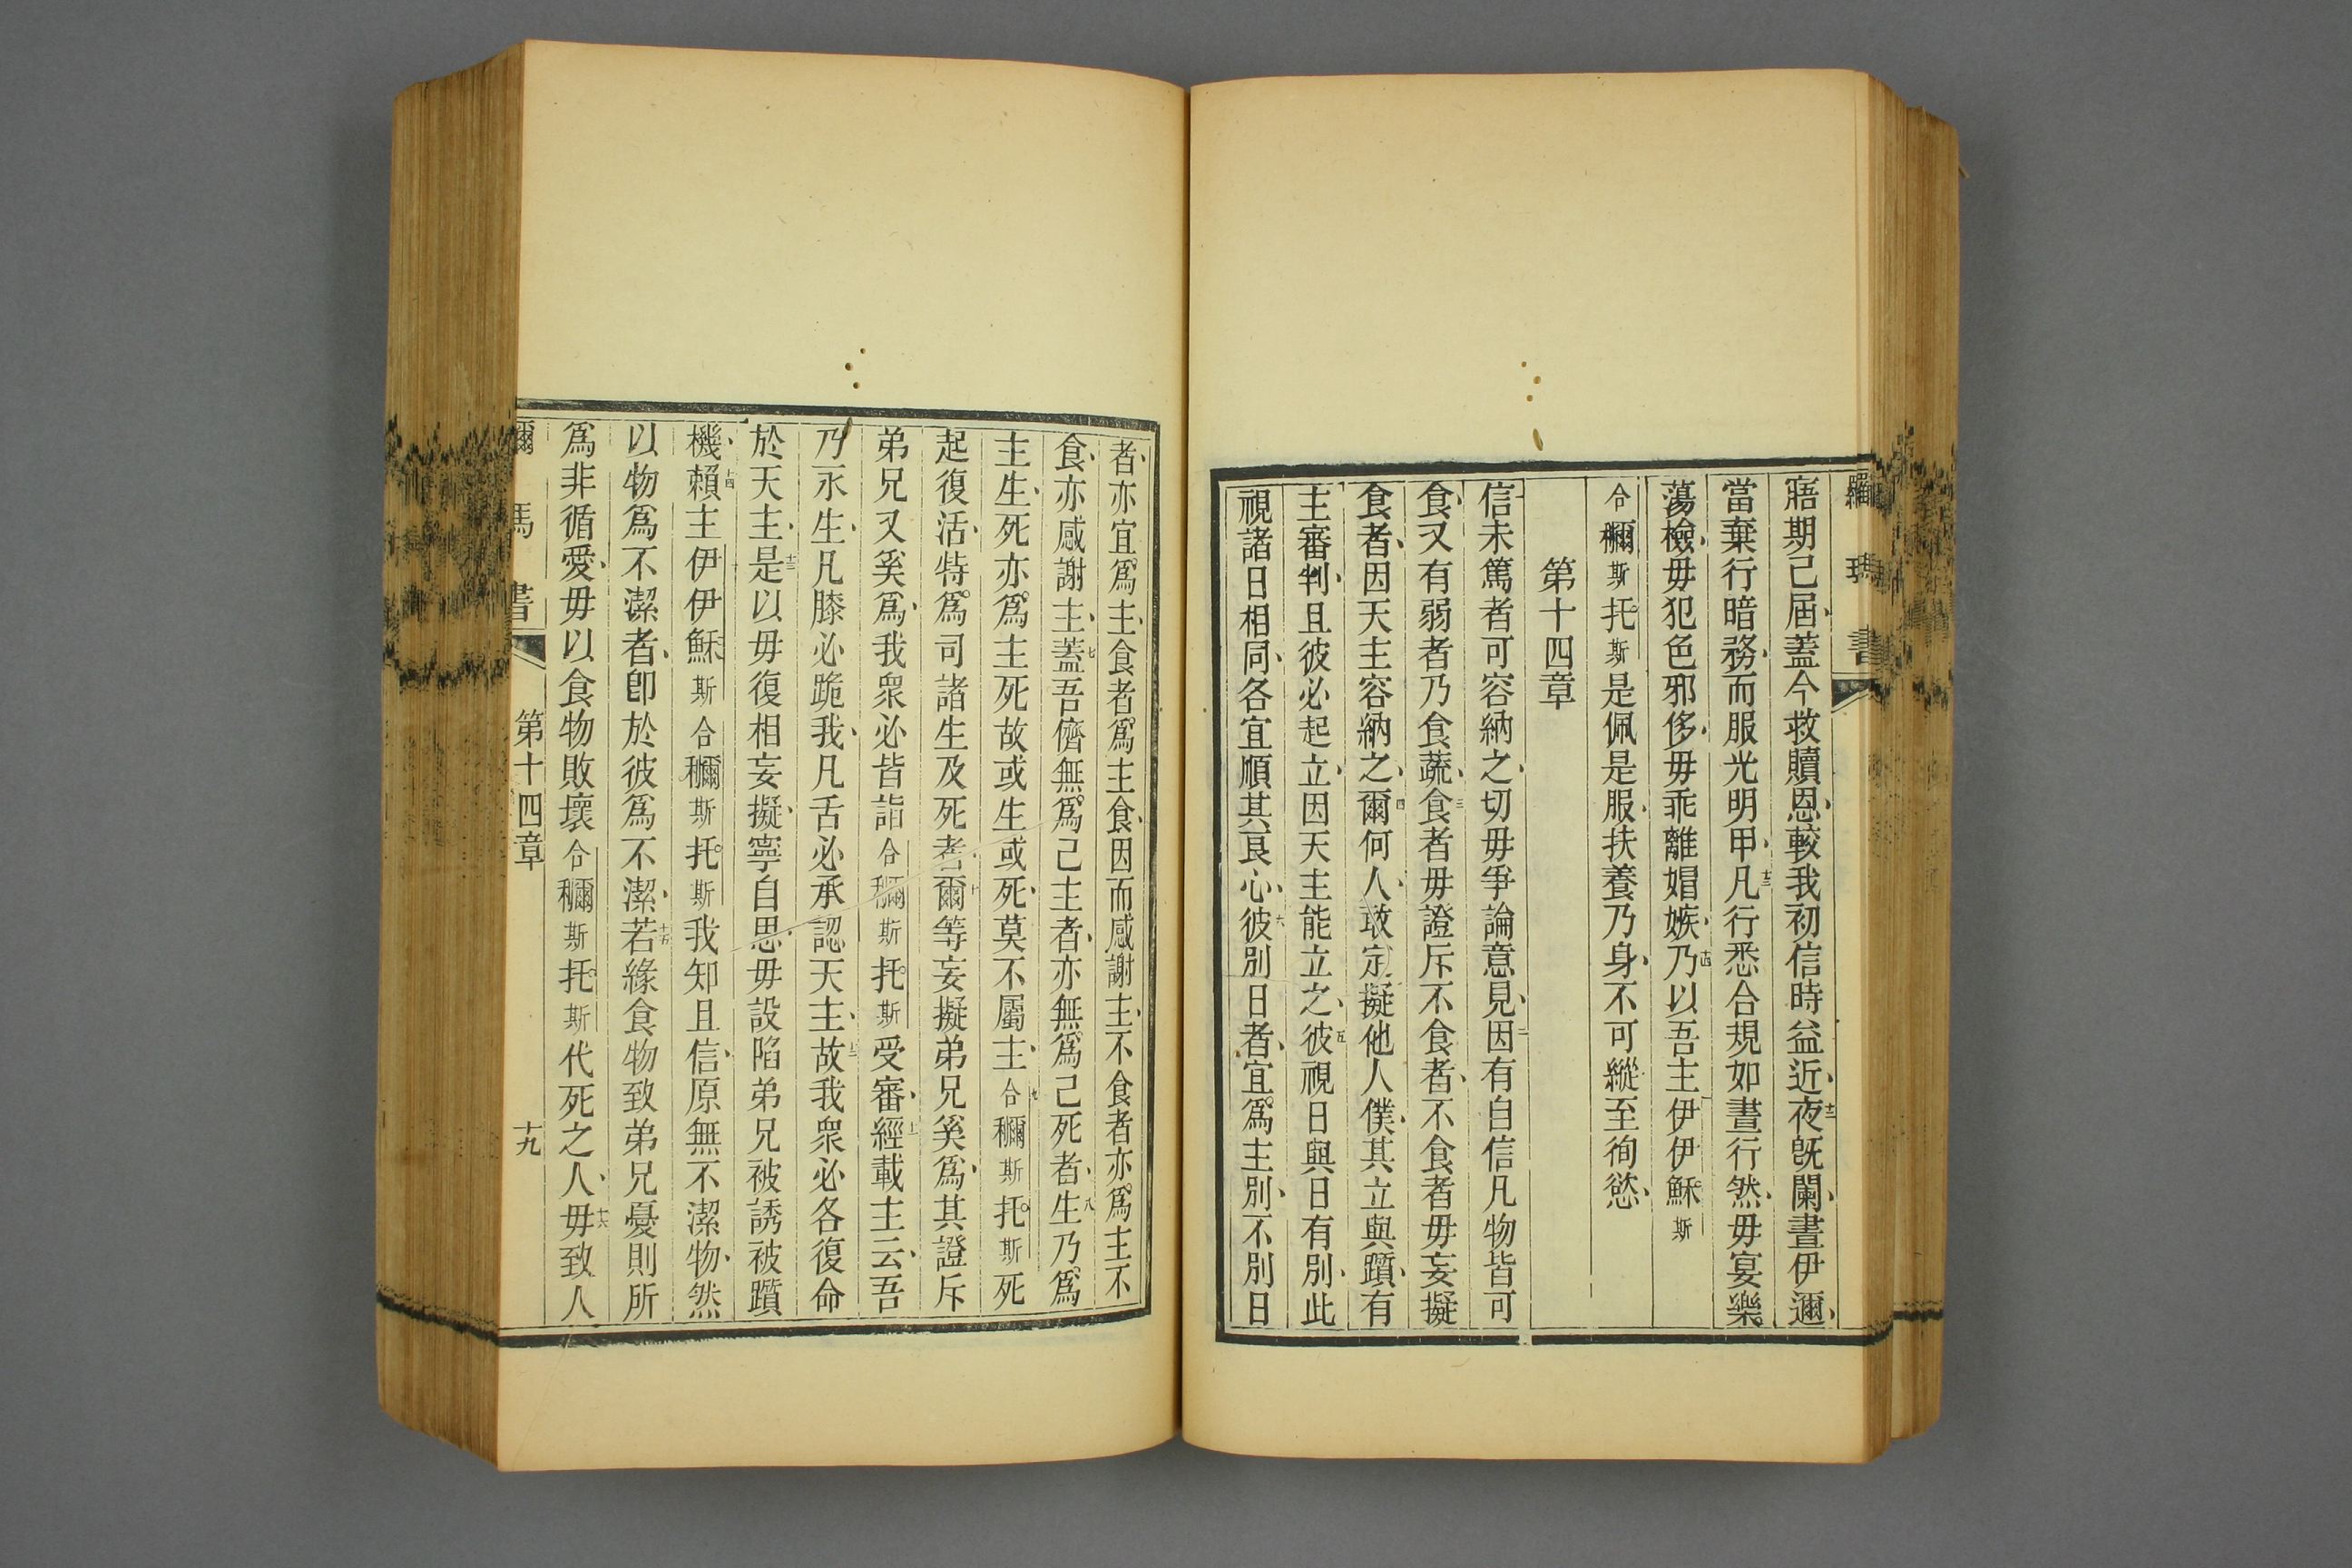 羅瑪書
寤期己屆蓋今救贖恩較我初信時益近十二夜旣闌晝伊邇
當棄行暗務而服光明甲十三凡行悉合規如晝行然毋宴樂
蕩檢毋犯色邪侈毋乖離媢嫉十四乃以吾主伊伊穌斯
合穪斯托斯是佩是服扶養乃身不可縱至徇慾
第十四章
信未篤者可容納之切毋爭論意見二因有自信凡物皆可
食又有弱者乃食蔬三食者毋證斥不食者不食者毋妄擬
食者因天主容納之四爾何人敢定擬他人僕其立與躓有
主審判且彼必起立因天主能立之五彼視日與日有別此
視諸日相同各宜順其良心六彼別日者宜爲主別不別日
者亦宜爲主食者爲主食因而感謝主不食者亦爲主不
食亦感謝主七蓋吾儕無爲己主者亦無爲己死者八生乃爲
主生死亦爲主死故或生或死莫不屬主九合穪斯托斯死
起復活特爲司諸生及死者十爾等妄擬弟兄奚爲其證斥
弟兄又奚爲我衆必皆詣合穪斯托斯受審十一經載主云吾
乃永生凡膝必跪我凡舌必承認天主十二故我衆必各復命
於天主十三是以毋復相妄擬寧自思毋設陷弟兄被誘被躓
機十四賴主伊伊穌斯合穪斯托斯我知且信原無不潔物然
以物爲不潔者卽於彼爲不潔十五若緣食物致弟兄憂則所
爲非循愛毋以食物敗壞合穪斯托斯代死之人十六毋致人
馬書 第十四章 十九